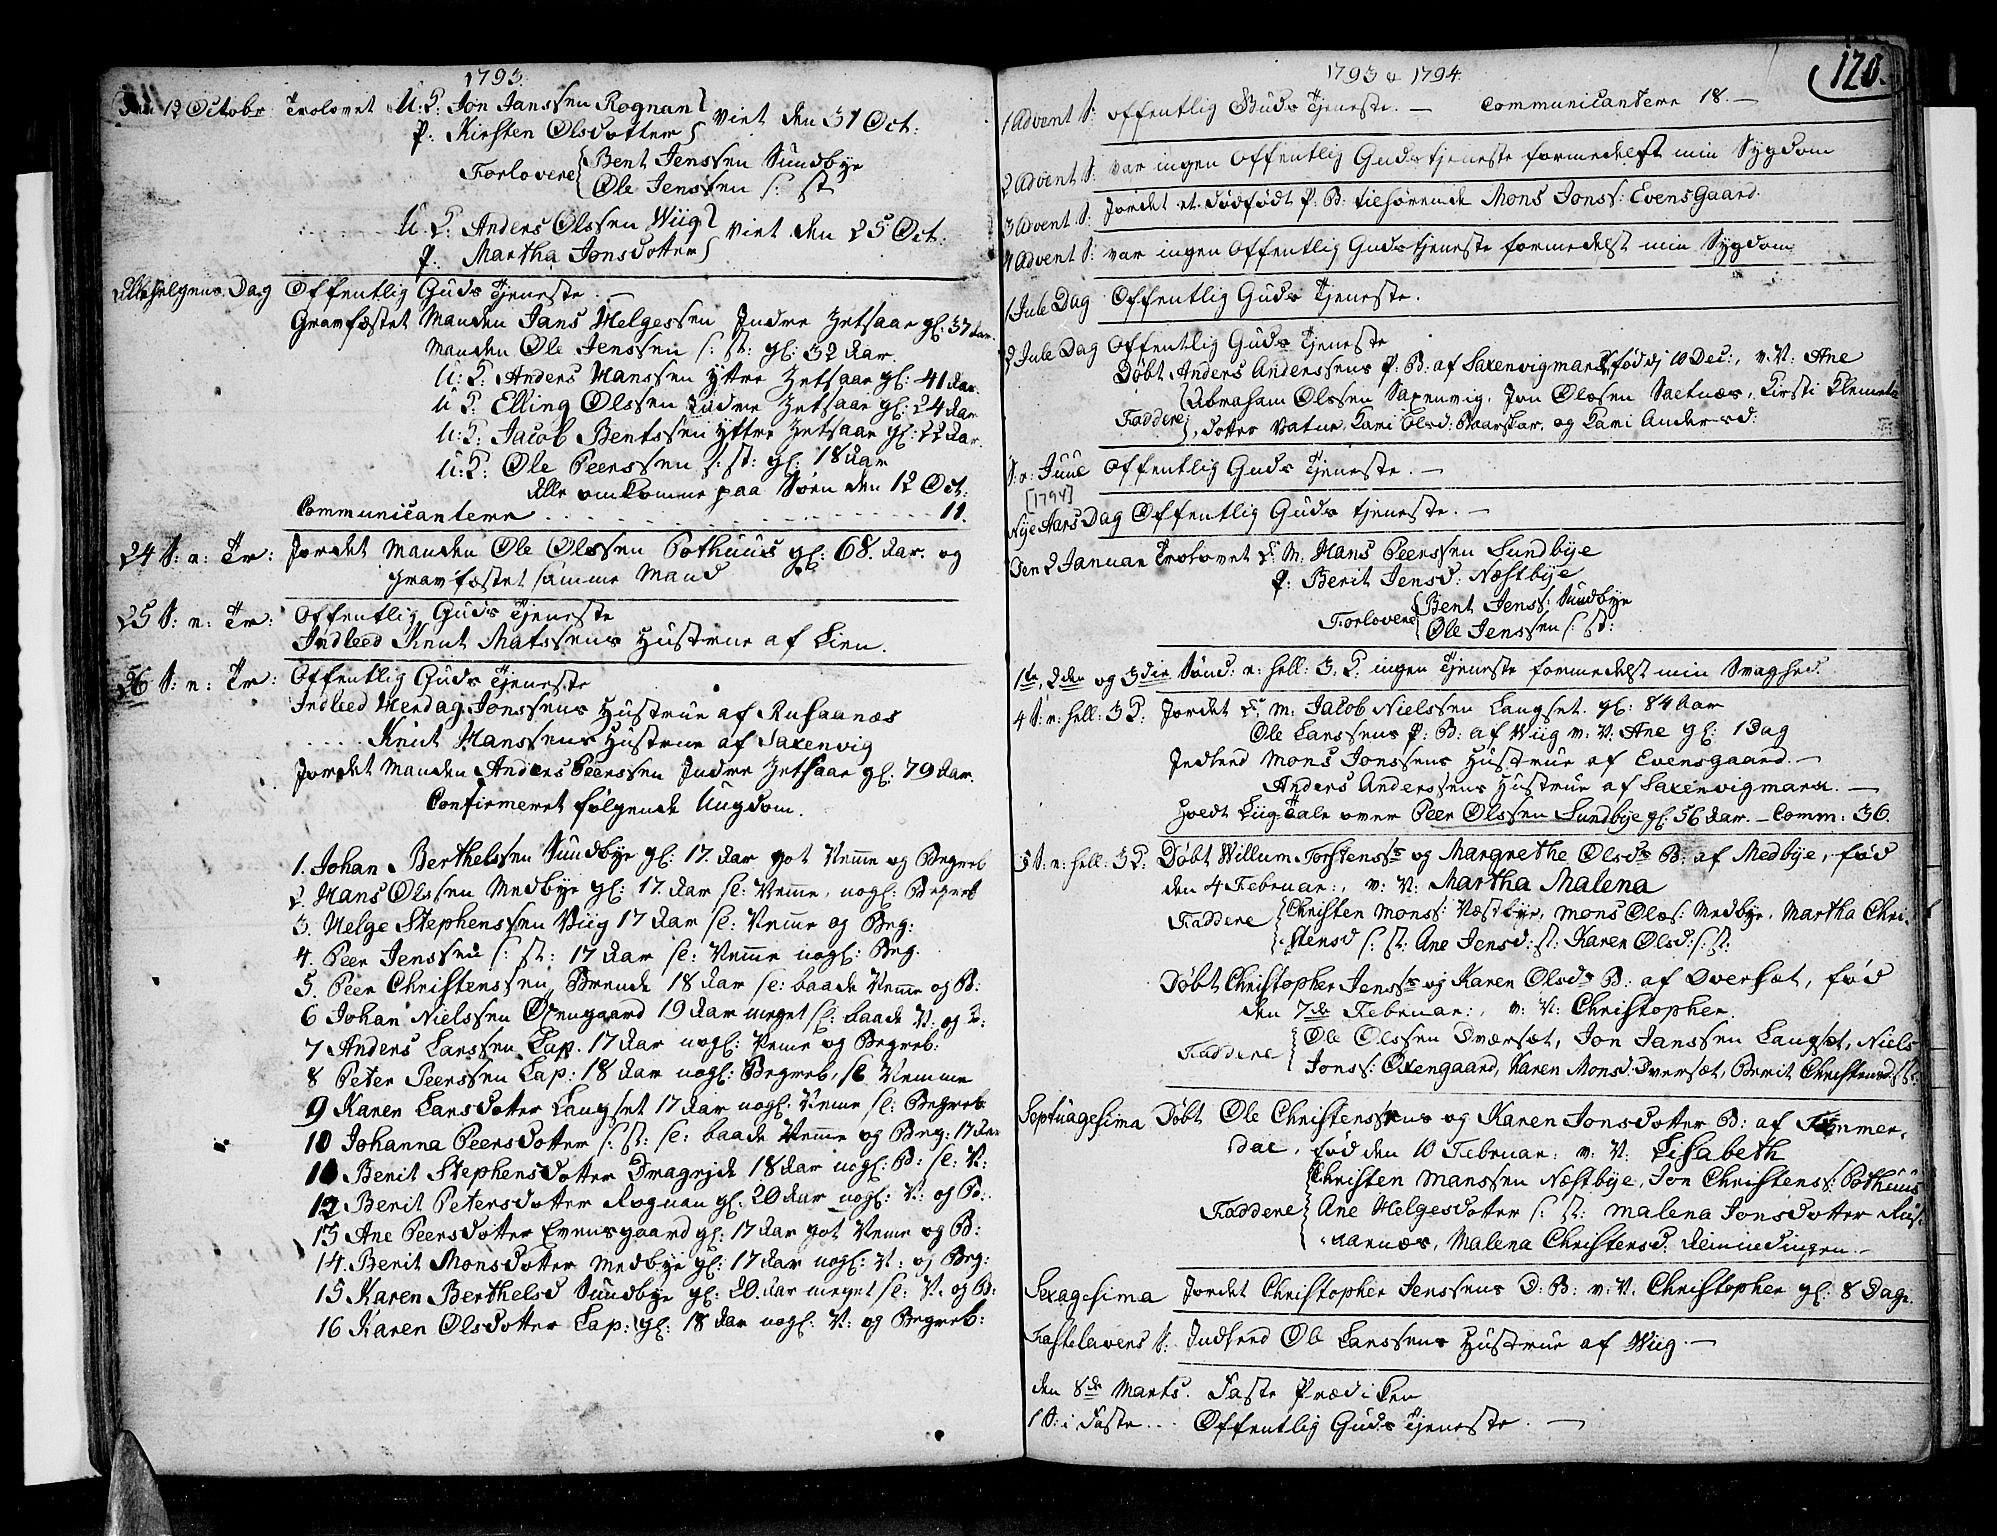 1793.
Den 12 Octobr Trolovet U: K: Jon Janssen Rognan
P. Kirsten Olsdotter
Viet den 31 Oct:
Forlovere Bent Jenssen Sundbye
Ole Jenssen s: st
U. K: Anders Olssen Wiig
P. Martha Jonsdotter
Viet den 25 Oct:
Allehelgens Dag Offentlig Guds Tjeneste. —
Gravfæstet Manden Jans Helgessen Indre Zetsaae gl: 37 Aar.
Manden Ole Jenssen s: st: gl: 32 Aar.
U: K: Anders Hanssen Yttre Zetsaae gl: 41 Aar.
U: K: Elling Olssen Indre Zetsaae gl: 24 Aar
U: K: Jacob Bentssen Yttre Zetsaae gl: 22 Aar.
U: K: Ole Peerssen s: st: gl: 18 Aar
Alle omkomne paa Søen den 12 Oct:
Communicantere . . . . . . 11.
24 S: n: Tr: Jordet Manden Ole Olssen Pothuus gl: 68. Aar. og
gravfæstet samme Mand
25 S: n: Tr: Offentlig Guds Tjeneste
Indleed Knut Matssens Hustrue af Lien.
26 S: n: Tr: Offentlig Guds Tjeneste
Indleed Herdag Jonssens Hustrue af Rusaanæs
. . . . Knut Hanssens Hustrue af Saxenvig
Jordet Manden Anders Peerssen Indre Zetsaae gl: 79 Aar.
Confirmeret følgende Ungdom.
1. Johan Berthelssen Sundbye gl: 17. Aar got Nemme og Begreb
2. Hans Olssen Medbye gl: 17. Aar sl: Nemme, nogl: Begreb
3. Helge Stephenssen Viig 17 Aar sl: Nemme og Beg:
4. Peer Jenssen s: st: 17 Aar sl: Nemme nogl: Beg.
5. Peer Christenssen Brende 18 Aar sl: baade Nemme og B:
6 Johan Nielssen Oxengaard 19 Aar meget sl: baade N: og B:
7 Anders Larssen Lap. 17 Aar nogl: Neme og Begreb:
8 Peter Peerssen Lap: 18 Aar nogl: Begreb, sl: Nemme
9 Karen Larsdotter Langset 17 Aar nogl. Neme sl: Begreb
10 Johanna Peersdotter s: st: sl: baade Nemme og Beg: 17 Aar
11 Berit Stephensdotter Dragejde 18 Aar nogl: B: sl: N:
12 Berit Petersdotter Rognan gl: 20 Aar nogl: N: og B:
13 Ane Peersdotter Evensgaard gl: 17 Aar got Neme og B:
14. Berit Monsdotter Medbye gl: 17 Aar nogl: N: og Beg:
15 Karen Berthelsd Sundbye gl: 20. Aar meget sl: N. og B:
16 Karen Olsdotter Lap: gl: 18 Aar nogl. N: og Begreb:
1793 & 1794.
120.
1 Advent S: offentlig Guds Tjeneste. — Communicantere 18. —
2 Advent S: var ingen Offentlig Guds tjeneste formedelst min Sygdom
3 Advent S: Jordet et dødfødt P. B: tilhørende Mons Jons: Evensgaard.
4 Advent S: var ingen Offentlig Guds tjeneste formedelst min Sygdom.
1 Jule Dag Offentlig Guds Tjeneste.
2 Jule Dag Offentlig Guds Tjeneste
Døbt Anders Anderssens P. B: af Saxenvigmark, fød dj 10 Dec:, v. N: Ane
Faddere Abraham Olssen Saxenvig, Jon Olssen Saetnæs, Kirsti Klemets
dotter Vatne, Kari Olsd: Baarskar, og Kari Andersd:
S. n: Juul Offentlig Guds Tjeneste. —
[1794]
Nye Aars Dag Offentlig Guds tjeneste. —
Den 2 Januar Trolovet E. M. Hans Peerssen Sundbye
P. Berit Jensd: Næstbye
Forlovere Bent Jenss: Sundbye
Ole Jenssen s: st:
1te, 2den og 3die Sønd: n: hell: 3. K. ingen Tjeneste formedelst min Svaghed.
4 S: n: hell: 3 K: Jordet E. M. Jacob Nielssen Langset. gl: 84 Aar
Ole Larssens P. B: af Wiig v: N: Ane gl: 1 Dag
Indleed Mons Jonssens Hustrue af Evensgaard. —
Anders Anderssens Hustrue af Saxenvigmark. —
Holdt Liig Tale over Peer Olssen Sundbye gl: 56 Aar. — Comm: 36.
5 S: n: hell: 3 K: Døbt Willum Torstenss: og Margrethe Olsds B: af Medbye, fød
den 4 Februar:, v: N: Martha Malena
Faddere Christen Monss: Næstbye, Mons Olss: Medbye. Martha Chri-
stensd s: st: Ane Jensd: st: Karen Olsd: s: st:
Døbt Christopher Jenss: og Karen Olsds B: af Oversæt, fød
den 7de Februar:, v: N: Christopher.
Faddere Ole Olssen Oversæt, Jon Janssen Langset, Niels
Jonss: Oxengaard, Karen Monsd: Oversæt, Berit Christensd: st:
Septuagesima Døbt Ole Christenssens og Karen Jonsdotter B: af Tømmer-
dal, fød den 10 Februar: v: N. Lisabeth
Faddere Christen Manssen Næstbye, Jon Christenss: Pothuus
Ane Helgesdotter s: st: Malena Jonsdotter Rus-
aanæs, Malena Christensd.
Sexagesima Jordet Christopher Jenssens D: B: v: N. Christopher gl: 8 Dage.
Fastelavens S: Indleed Ole Larssens Hustrue af Wiig. —
den 8de Marts. Faste Prædiken
1 S: i Faste . . . Offentlig Guds Tjeneste. —